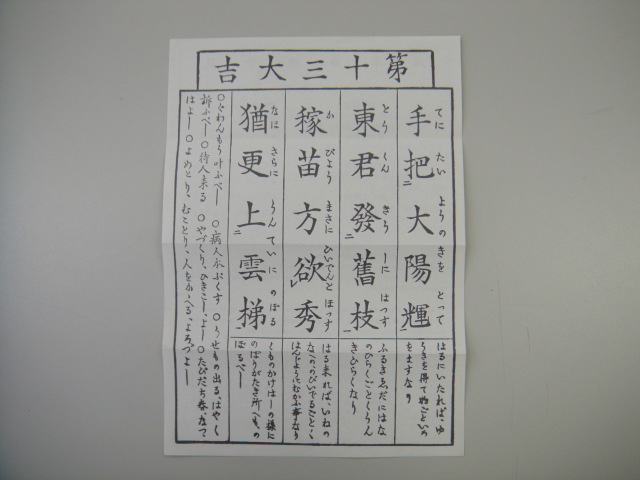 第十三大吉
手把二大陽輝一
てに たい ようの きを とつて
はるにいたれば、ゆ
うきを得て物ごといの
をますなり
東君發二舊枝一
とう くん きうしに はつす
ふるきゑだにはな
のひらくごとくうん
きひらくなり
稼苗方欲レ秀
か びよう まさに ひいでんと ほつす
はる来れば、いねの
なへののびいでるごとく
はんじようにむかふ事なり
猶更上二雲梯一
なほ さらに うんていに のぼる
くものかけはしの様に
のぼりがたき所へもの
ぼるべし
〇ぐわんもう叶ふべし 〇病人ふくす 〇うせもの出る、はやく
訴ふべし 〇待人来る 〇やづくり、ひきこし、よし 〇たびだち春、なつ、
はよし 〇よめとり、むことり、人をかゝへる、よろづよし